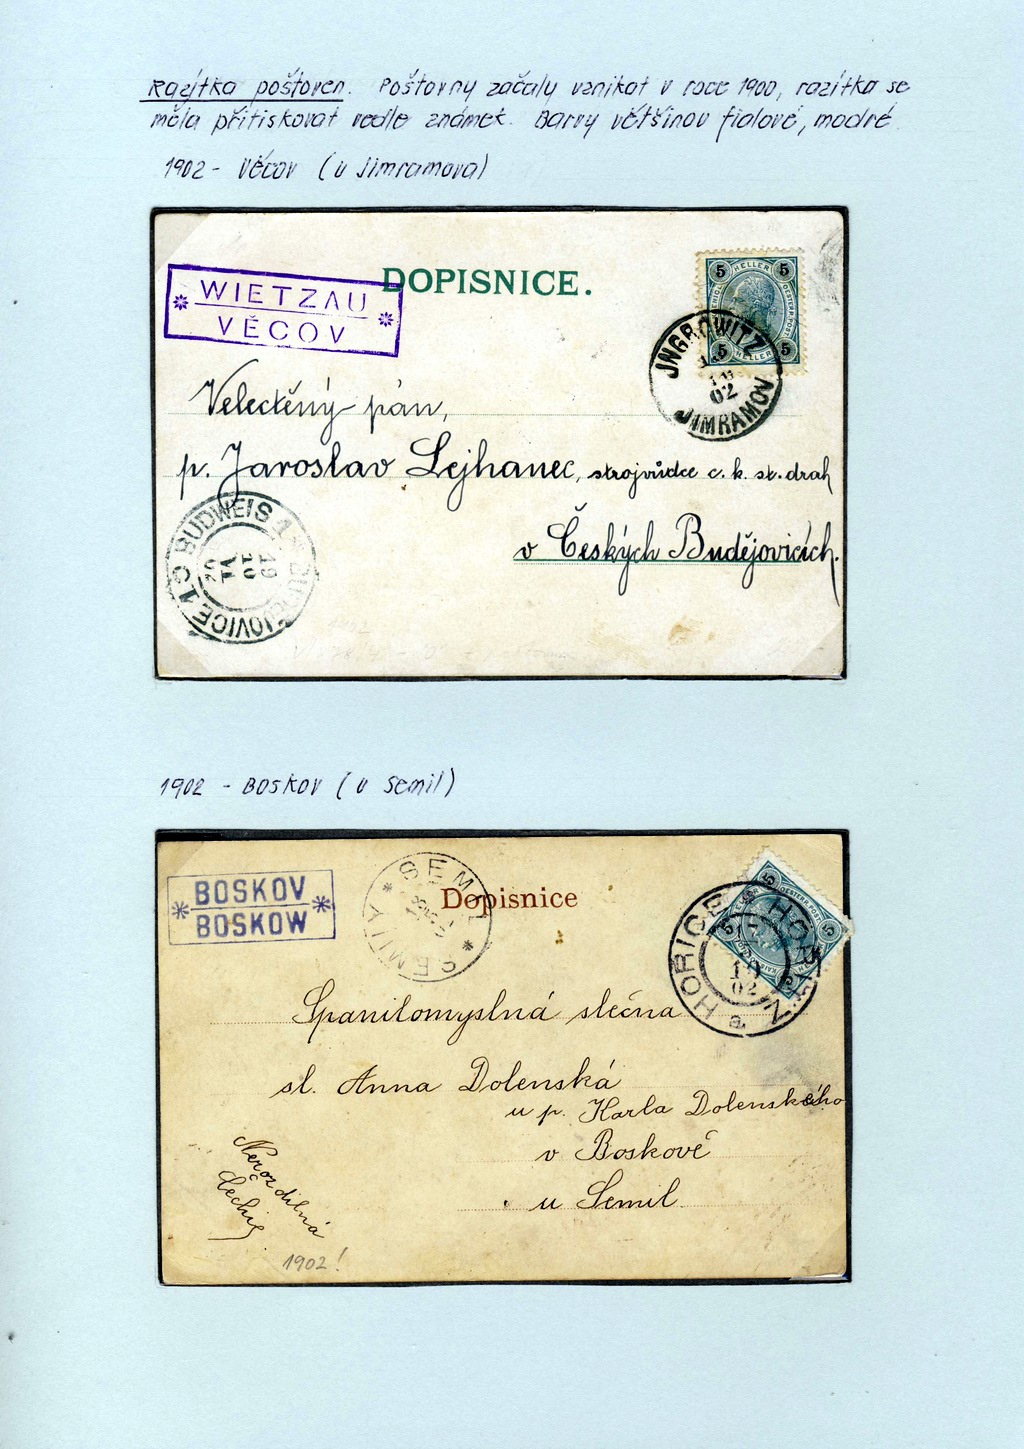 Razítka poštoven. Poštovny začaly vznikat v roce 1900, razítka se
měla přitiskovat vedle známek. Barvy většinou fialové, modré.
1902 - Věcov (u Jimramova)
DOPISNICE.
WIETZAU
VĚCOV
5 HELLER 5
5 HELLER 5
JNGROWITZ
02
JIMRAMOV
Velectěný pán,
p. Jaroslav Lejhanec, strojvůdce c. k. st. drah
v Českých Budějovicích.
BUDWEIS 1
BUDĚJOVICE 1
1902 - Boskov (u Semil)
BOSKOV
BOSKOW
SEMIL
SEMILY
Dopisnice
5
HOŘICE
10
02
Spanilomyslná slečna
sl. Anna Dolenská
u p. Karla Dolenského
v Boskově
u Semil.
Nerozdílná
Čechie
1902!